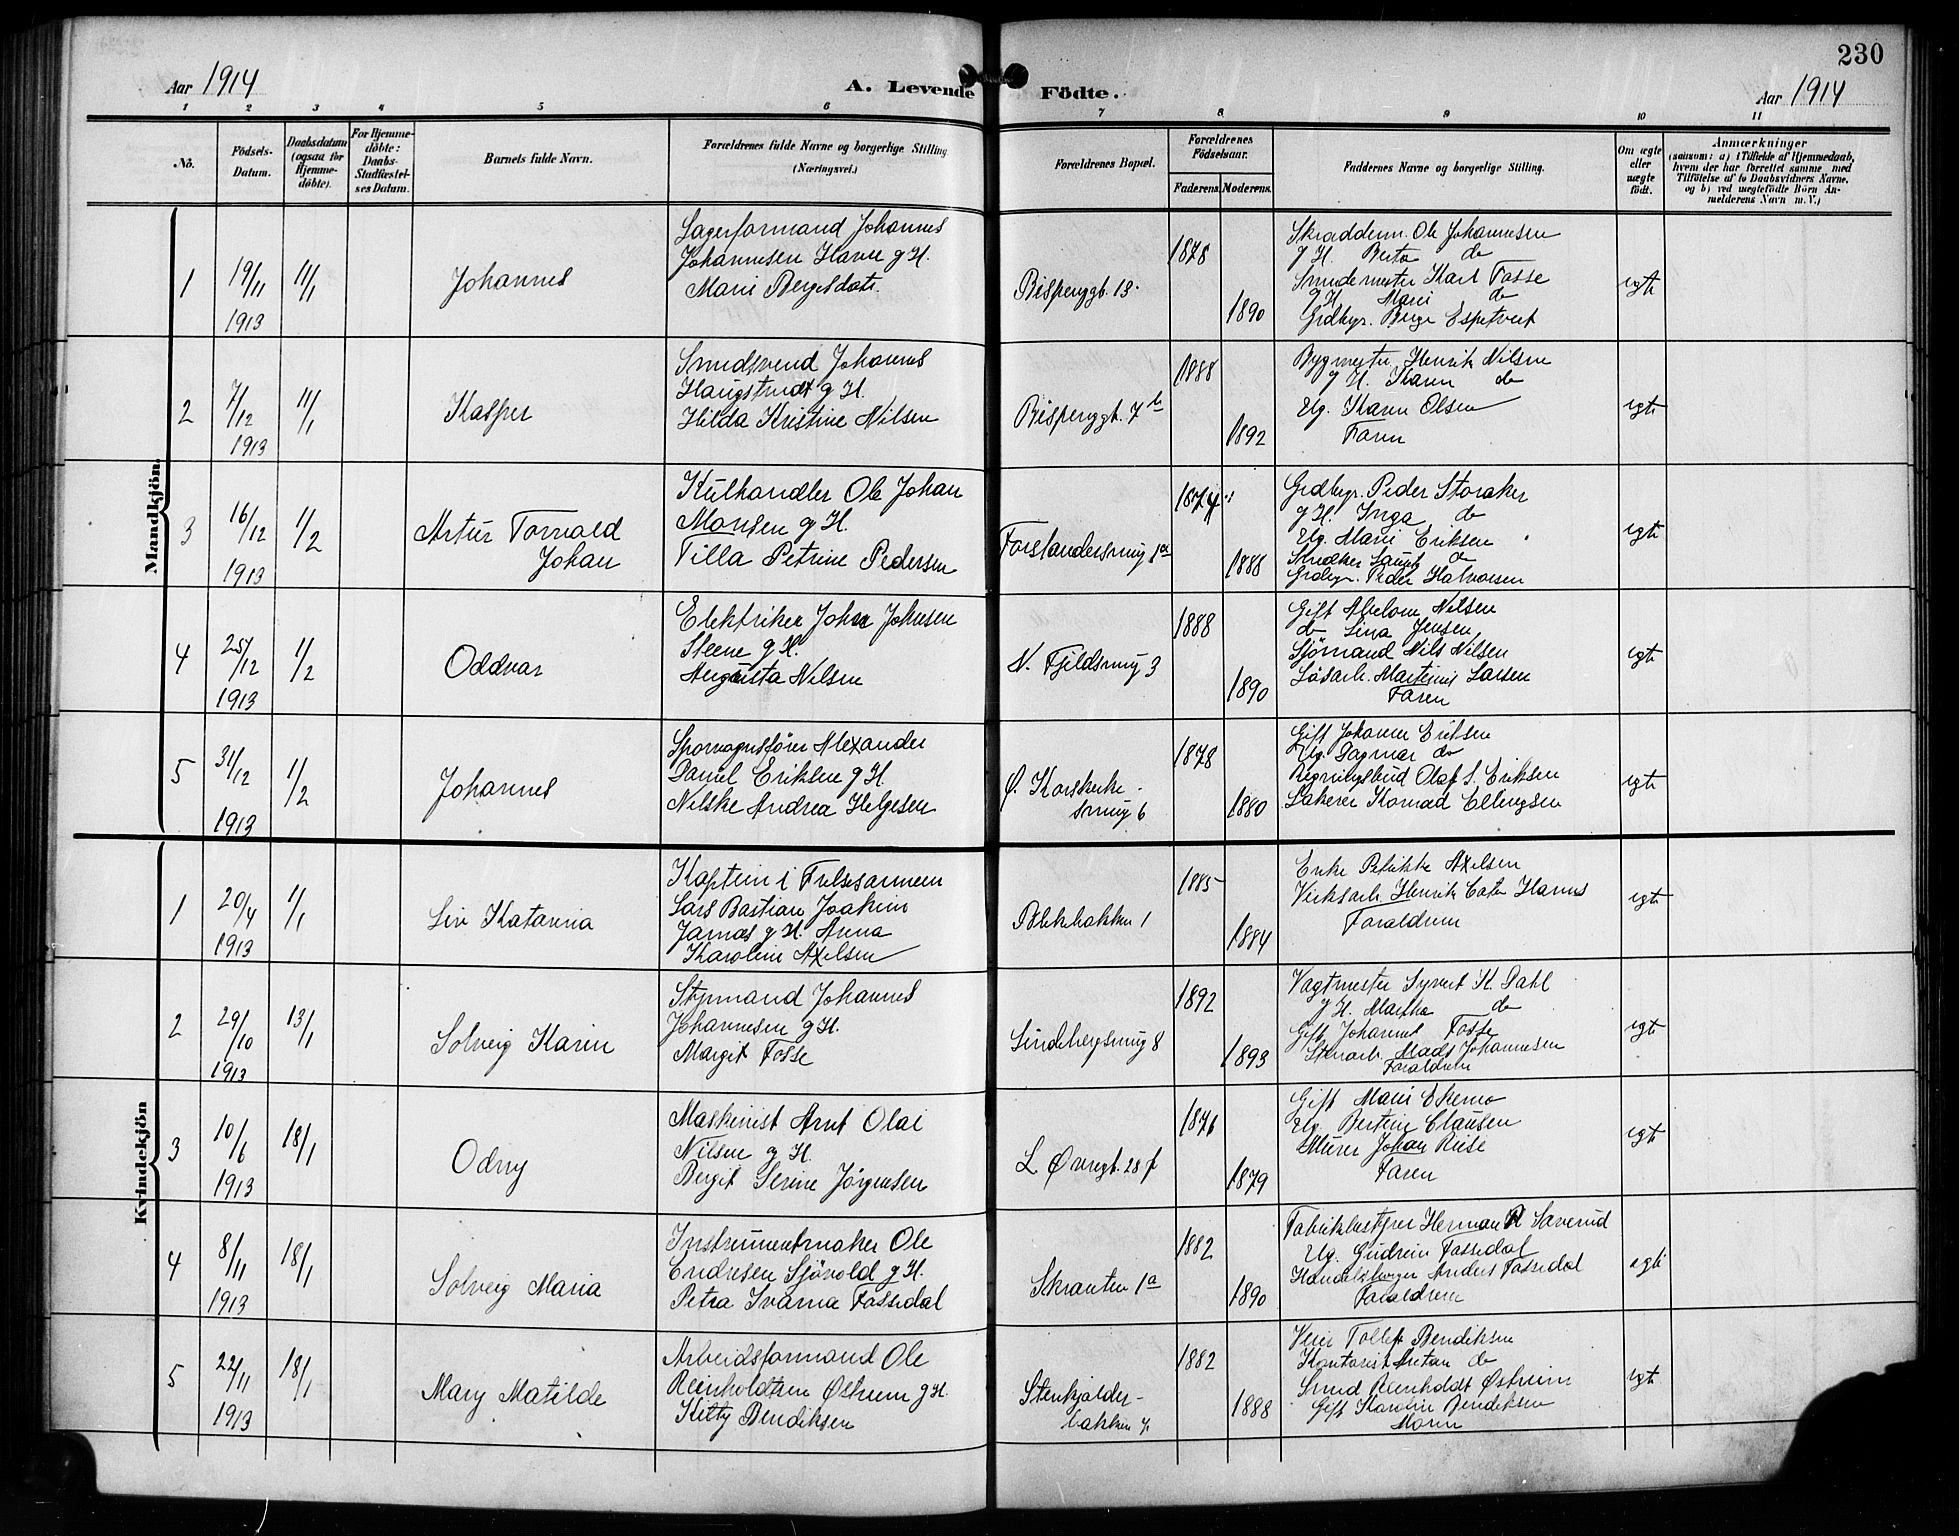 230
Aar 1914
A. Levende Födte.
Aar 1914
1 2 3 4 5 6 7 8 9 10 11
No.
Födsels-Datum.
Daabsdatum (ogsaa for Hjemme-döbte).
For Hjemme-döbte: Daabs-Stadfæstel-ses Datum.
Barnets fulde Navn.
Forældrenes fulde Navne og borgerlige Stilling
(Næringsvei.)
Forældrenes Bopæl.
Forældrenes Födselsaar.
Faderens. Moderens.
Faddernes Navne og borgerlige Stilling.
Om ægte eller uægte födt.
Anmærkninger
(saasom: a) i Tilfælde af Hjemmedaab,
hvem der har forrettet samme med
Tilföielse af to Daabsvidners Navne.
og b) ved uægtefödte Börn An-
melderens Navn m. V.)
Mandkjön.
1
19/11 1913
11/1
Johannes
Lagerformand Johannes
Johannesen Havre g H.
Marie Bergesdatr.
Bispengt. 13.
1878
1890
Skræddern. Ole Johannesen
g H. Berta do
Smedemester Karl Fosse
g H Marie do
Grdbgr. Berge Espetveit
egte
2
7/12 1913
11/1
Kasper
Smedsvend Johannes
Haugstvedt g H.
Hilda Kristine Nilsen
Bispengt. 7 b
1888
1892
Bygmester Henrik Nilsen
g H. Karen do
Ug. Karen Olsen
Faren
egte
3
16/12 1913
1/2
Artur Torvald
Johan
Kulhandler Ole Johan
Monsen g H.
Tilla Petrine Pedersen
Forstandersmug 1 a
1874
1888
Grdbgr. Peder Storaker
g H. Inga do
Ug. Marie Eriksen
Snedker Lauritz do
Grdbgr. Peder Halvorsen
egte
4
25/12 1913
1/2
Oddvar
Elektriker John Johnsen
Steene g H.
Augusta Nilsen
N. Fjeldsmug 3
1888
1890
Gift Abelone Nilsen
do Lina Jensen
Sjømand Nils Nilsen
Løsarb. Martinus Larsen
Faren
egte
5
31/12 1913
1/2
Johannes
Sporvognsfører Alexander
Daniel Eriksen g H.
Nilske Andrea Helgesen
Ø. Korskirke-
smug 6
1878
1880
Gift Johanne Eriksen
Ug. Dagmar do
Regningsbud Olaf S. Eriksen
Laherer Konrad Ellingsen
egte
Kvindekjön
1
20/4 1913
1/1
Liv Katarina
Kaptein i Frelsesarmeen
Lars Bastian Joakim
Jarnæs g H. Anna
Karoline Axelsen
Blekebakken 1
1885
1884
Enke Petrikke Axelsen
Verksarb. Henrik Cato Hannes
Forældrene
egte
2
29/10 1913
13/1
Solveig Karin
Styrmand Johannes
Johannesen g H.
Margit Fosse
Lindebergsmug 8
1892
1893
Vagtmester Syvert K. Dahl
g H. Martha do
Gift Johanne Fosse
Stenarb. Mads Johannesen
Forældrene
egte
3
10/6 1913
18/1
Odny
Maskinist Arnt Olai
Nilsen g H.
Bergit Serine Jørgensen
L. Øvregt. 28 f
1876
1879
Gift Marie Ekemo
Ug. Bertine Clausen
Murer Johan Riise
Faren
egte
4
8/11 1913
18/1
Solveig Maria
Instrumentmaker Ole
Endresen Sjövold g H.
Petra Ivarna Fossedal
Skranten 1 a
1882
1890
Fabrikbestyrer Herman R Saverud
Ug. Gudrun Fossedal
Handelsborger Anders Fossedal
Forældrene
egte
5
22/11 1913
18/1
Mary Matilde
Arbeidsformand Ole
Reinholdtsen Østrem g H.
Kitty Bendiksen
Stenkjælder-
bakken 4
1882
1888
Tollef Bendiksen
Kontorist Anton do
Smed Reinholdt Østrem
Gift Karoline Bendiksen
Moren
egte